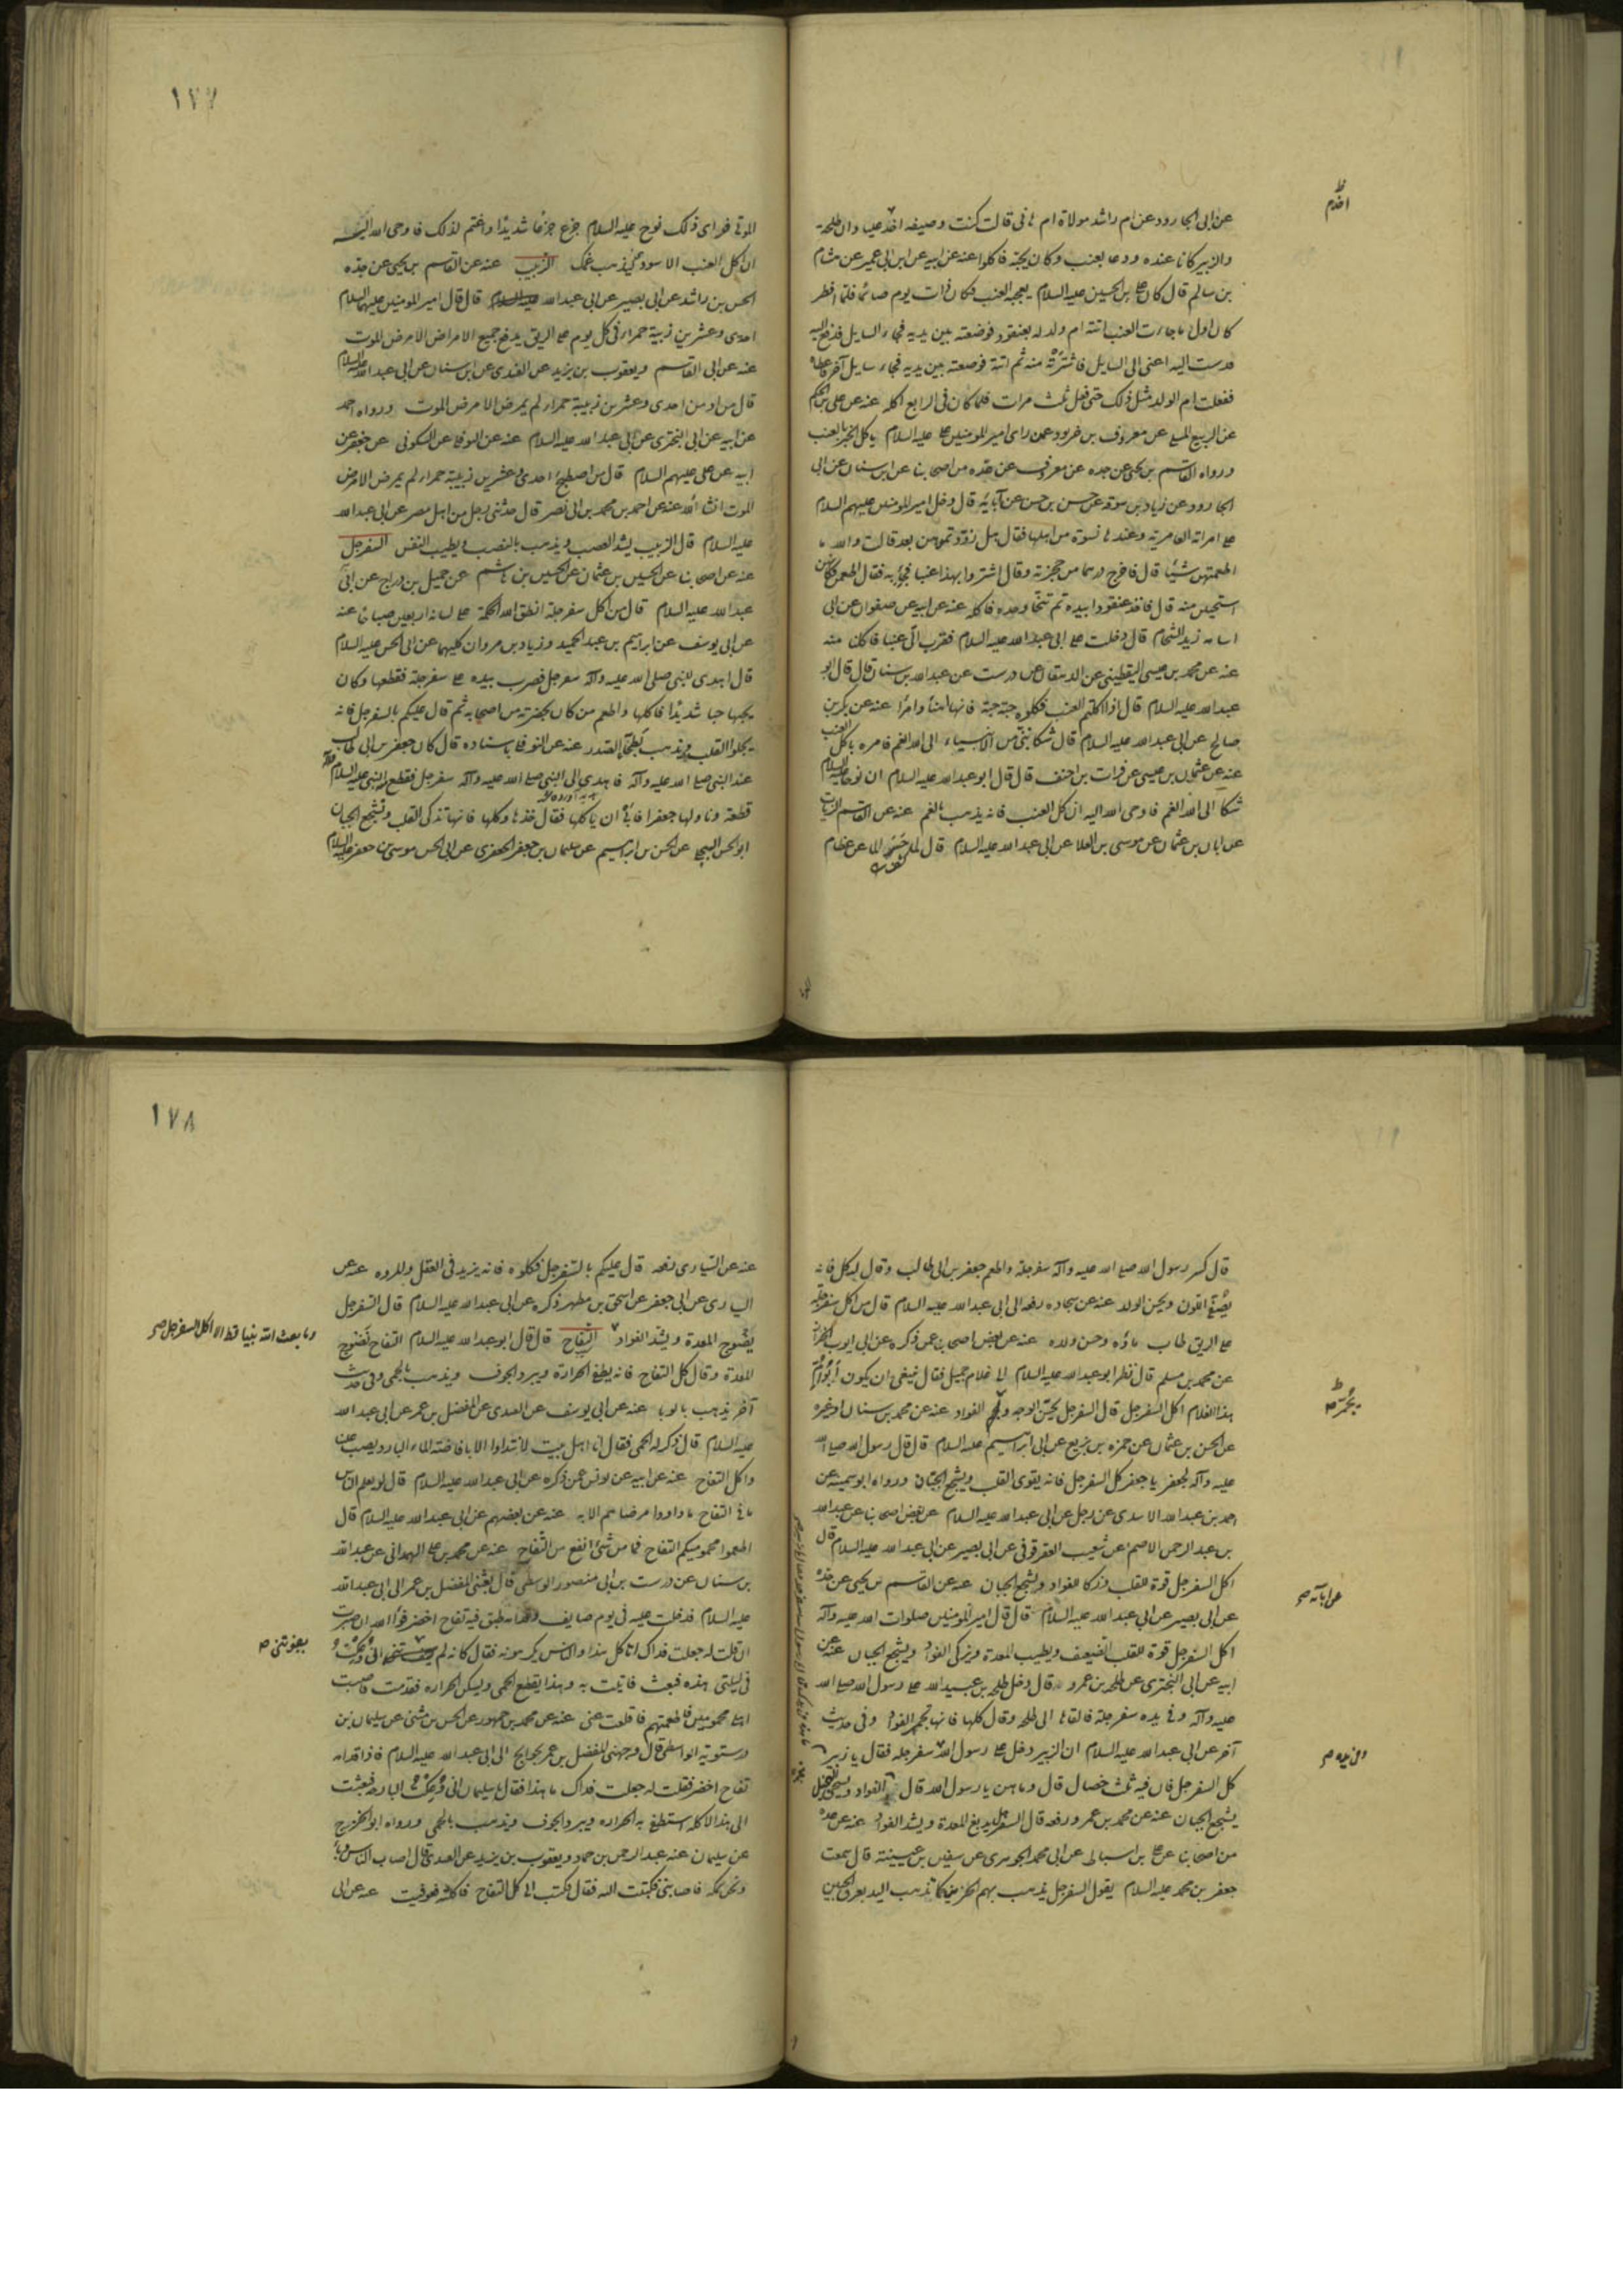 اخدم
عن ابى الجارود عن ام راشد مولاة ام هانى قالت كنت وصيفه اخدم عليا وان طلحة
والزبير كانا عنده ودعا بعنب وكان يحبه فاكلوا عنه عن ابيه عن ابن ابى عمير عن هشام
بن سالم قال كان على بن الحسين عليه السلام يعجبه العنب فكان ذات يوم صائما فلما افطر
كان اول ما جاءت العنب اتته ام ولد له بعنقود فوضعته بين يديه فجاء السايل فدفع اليه
فدست اليه اعنى الى السايل فاشترته منه ثم اتته فوضعته بين يديه فجاء سايل آخر فاعطاه
ففعلت ام الولد مثل ذلك حتى فعل ثلث مرات فلما كان فى الرابع اكله عنه عن على بن الحكم
عن الربيع المسلى عن معروف بن خربوذ عمن راى امير المومنين على عليه السلام ياكل الخبز بالعنب
ورواه القاسم بن يحيى عن جده عن معروف عن عده من اصحابنا عن ابن سنان عن ابى
الجارود عن زياد بن سوقه عن حسن بن حسن عن آبائه قال دخل امير المومنين عليهم السلام
على امراته العامرية وعندها نسوة من اهلها فقال هل زودتموهن بعد قالت والله ما
اطعمتهن شيئا قال فاخرج درهما من حجزته وقال اشتروا بهذا عنبا فجئ به فقال اطعمن فكانهن
استحيين منه قال فاخذ عنقودا بيده ثم تنحا وحده فاكله عنه عن ابيه عن صفوان عن ابى
اسامه زيد الشحام قال دخلت على ابى عبدالله عليه السلام فقرب الى عنبا فاكلنا منه
عنه عن محمد بن عيسى اليقطينى عن الدهقان عن درست عن عبدالله بن سنان قال قال ابو
عبدالله عليه السلام قال اذا اكلتم العنب فكلوه حبة حبة فانها اهنأ وامرأ عنه عن بكر بن
صالح عن ابى عبدالله عليه السلام قال شكا نبى من الانبياء الى الله الغم فامره باكل العنب
عنه عن عثمان بن عيسى عن فرات بن احنف قال قال ابو عبدالله عليه السلام ان نوحا عليه السلام
شكا الى الله الغم فاوحى الله اليه ان كل العنب فانه يذهب بالغم عنه عن القاسم الزيات
عن ابان بن عثمان عن موسى بن العلا عن ابى عبدالله عليه السلام قال لما حسر الما عن عظام
١٧٧
الموتى فراى ذلك نوح عليه السلام جزع جزعا شديدا واغتم لذلك فاوحى الله اليه
ان كل العنب الاسود حتى يذهب غمك الزبيب عنه عن القاسم بن يحيى عن جده
الحسن بن راشد عن ابى بصير عن ابى عبدالله عليه السلام قال قال امير المومنين عليهما السلام
احدى وعشرين زبيبة حمراء فى كل يوم على الريق يدفع جميع الامراض الا مرض الموت
عنه عن ابى القاسم ويعقوب بن يزيد عن القندى عن ابن سنان عن ابى عبدالله عليه السلام
قال من ادمن احدى وعشرين زبيبة حمراء لم يمرض الا مرض الموت ورواه احمد
عن ابيه عن ابى البخترى عن ابى عبدالله عليه السلام عنه عن النوفلى عن السكونى عن جعفر عن
ابيه عن على عليهم السلام قال من اصطبح احدى وعشرين زبيبة حمراء لم يمرض الا مرض
الموت انشاالله عنه عن احمد بن محمد بن ابى نصر قال حدثنى رجل من اهل مصر عن ابى عبدالله
عليه السلام قال الزبيب يشد العصب ويذهب بالنصب ويطيب النفس السفرجل
عنه عن اصحابنا عن الحسين بن عثمان عن الحسين بن هاشم عن جميل بن دراج عن ابى
عبدالله عليه السلام قال من اكل سفرجلة انطق الله الحكمة على لسانه اربعين صباحا عنه
عن ابى يوسف عن ابراهيم بن عبد الحميد وزياد بن مروان كليهما عن ابى الحسن عليه السلام
قال اهدى للنبى صلى الله عليه وآله سفرجل فضرب بيده على سفرجلة فقطعها وكان
يحبها حبا شديدا فاكلها واطعم من كان بحضرته من اصحابه ثم قال عليكم بالسفرجل فانه
يجلوا القلب ويذهب بطخاء الصدر عنه عن النوفلى باسناده قال كان جعفر بن ابى طالب
عند النبى صلى الله عليه وآله فاهدى الى النبى صلى الله عليه وآله سفرجل فقطع النبى عليه السلام منه
قطعة وناولها جعفرا فابى ان ياكلها فقال خذها وكلها فانها تذكى القلب وتشجع الجبان
ابو الحسن البجلى عن الحسن بن ابراهيم عن سليمان بن جعفر الجعفرى عن ابى الحسن موسى بن جعفر عليه السلام
قال كسر رسول الله صلى الله عليه وآله سفرجلة واطعم جعفر بن ابى طالب وقال له كل فانه
يصفى اللون ويحسن الولد عنه عن سجاده رفعه الى ابى عبدالله عليه السلام قال من اكل سفرجلة
على الريق طاب ماؤه وحسن ولده عنه عن بعض اصحابنا عمن ذكره عن ابى ايوب الخزاز
عن محمد بن مسلم قال نظر ابو عبدالله عليه السلام الى غلام جميل فقال ينبغى ان يكون ابوا
هذا الغلام اكلا السفرجل قال السفرجل يحسن الوجه و الفواد عنه عن محمد بن سنان او غيره
عن الحسن بن عثمان عن حمزه بن بزيع عن ابى ابراهيم عليه السلام قال قال رسول الله صلى الله
عليه وآله لجعفر يا جعفر كل السفرجل فانه يقوى القلب ويشجع الجبان ورواه ابو سمينه عن
احمد بن عبدالله الاسدى عن رجل عن ابى عبدالله عليه السلام عن بعض اصحابنا عن عبدالله
بن عبد الرحمن الاصم عن شعيب العقرقوفى عن ابى بصير عن ابى عبدالله عليه السلام قال
اكل السفرجل قوة للقلب وذكا للفواد ويشجع الجبان عنه عن القاسم بن يحيى عن جده
عن آبائه
عن ابى بصير عن ابى عبدالله عليه السلام قال قال امير المومنين صلوات الله عليه وآله
اكل السفرجل قوة للقلب الضعيف ويطيب المعدة ويزكى الفواد ويشجع الجبان عنه عن
ابيه عن ابى البخترى عن طلحه بن عمرو قال دخل طلحه بن عبيدالله على رسول الله صلى الله
عليه وآله وفى يده سفرجلة فالقاها الى طلحه وقال كلها فانها تجم الفواد وفى حديث
آخر عن ابى عبدالله عليه السلام ان الزبير دخل على رسول الله سفرجله فقال يا زبير
وفى يده
كل السفرجل فان فيه ثلث خصال قال وما هن يا رسول الله قال الفواد ويسخى البخيل
يشجع الجبان عنه عن محمد بن عمر ورفعه قال السفرجل يدبغ المعدة ويشد الفواد عنه عن عده
من اصحابنا عن على بن اسباط عن ابى محمد الجوهرى عن سفين بن عيينة قال سمعت
جعفر بن محمد عليه السلام يقول السفرجل يذهب بهم الحزين كما تذهب اليد بعرق الجبين
١٧٨
عنه عن السيارى رفعه قال عليكم بالسفرجل فكلوه فانه يزيد فى العقل والمروه عنه عن
السيارى عن ابى جعفر عن اسحق بن مطهر ذكره عن ابى عبدالله عليه السلام قال السفرجل
وما بعث الله نبيا قط الا اكل السفرجل
يفرج المعدة ويشد الفواد التفاح قال قال ابو عبدالله عليه السلام التفاح نضوج
المعدة وقال كل التفاح فانه يطفئ الحرارة ويبرد الجوف ويذهب بالحمى وفى حديث
آخر يذهب بالوبا عنه عن ابى يوسف عن القندى عن المفضل بن عمر عن ابى عبدالله
عليه السلام قال ذكر له الحمى فقال انا اهل بيت لا نتداوا الا بافاضة الماء البارد يصب علينا
واكل التفاح عنه عن ابيه عن يونس عمن ذكره عن ابى عبدالله عليه السلام قال لو يعلم الناس
ما فى التفاح ما داووا مرضاهم الا به عنه عن بعضهم عن ابى عبدالله عليه السلام قال
اطعموا محموميكم التفاح فما من شئ انفع من التفاح عنه عن محمد بن على الهمدانى عن عبدالله
بن سنان عن درست بن ابى منصور الوسطى قال بعثنى المفضل بن عمر الى ابى عبدالله
عليه السلام فدخلت عليه فى يوم صايف وقدامه طبق فيه تفاح اخضر فوالله ان صبرت
ان قلت له جعلت فداك اتاكل هذا والناس يكرهونه فقال كانه لم يعرفنى انى وعكت
فى ليلتى هذه فبعثت فاتيت به وهذا يقطع الحمى ويسكن الحراره فقدمت فاصبت
اهلى محمومين فاطعمتهم فاقلعت عنى عنه عن محمد بن جمهور عن الحسن بن مثنى عن سليمان بن
درستويه الواسطى قال وجهنى المفضل بن عمر بحوايج الى ابى عبدالله عليه السلام فاذا قدامه
تفاح اخضر فقلت له جعلت فداك ما هذا فقال يا سليمان انى وعكت البارحه فبعثت
الى هذا لاكله استطفئ به الحراره ويبرد الجوف ويذهب بالحمى ورواه ابو الخزرج
عن سليمان عنه عبد الرحمن بن حماد ويعقوب بن يزيد عن القندى قال اصاب الناس وباء
ونحن بمكه فاصابنى فكتبت اليه فقال فكتب الى كل التفاح فاكلته فعوفيت عنه عن ابى